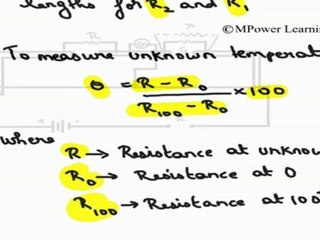 lengths for R₂ and R₁
©MPower Learni
To measure unknown temperat
θ = R - R₀ / R₁₀₀ - R₀ × 100
where
R → Resistance at unknow
R₀ → Resistance at 0
R₁₀₀ → Resistance at 100°